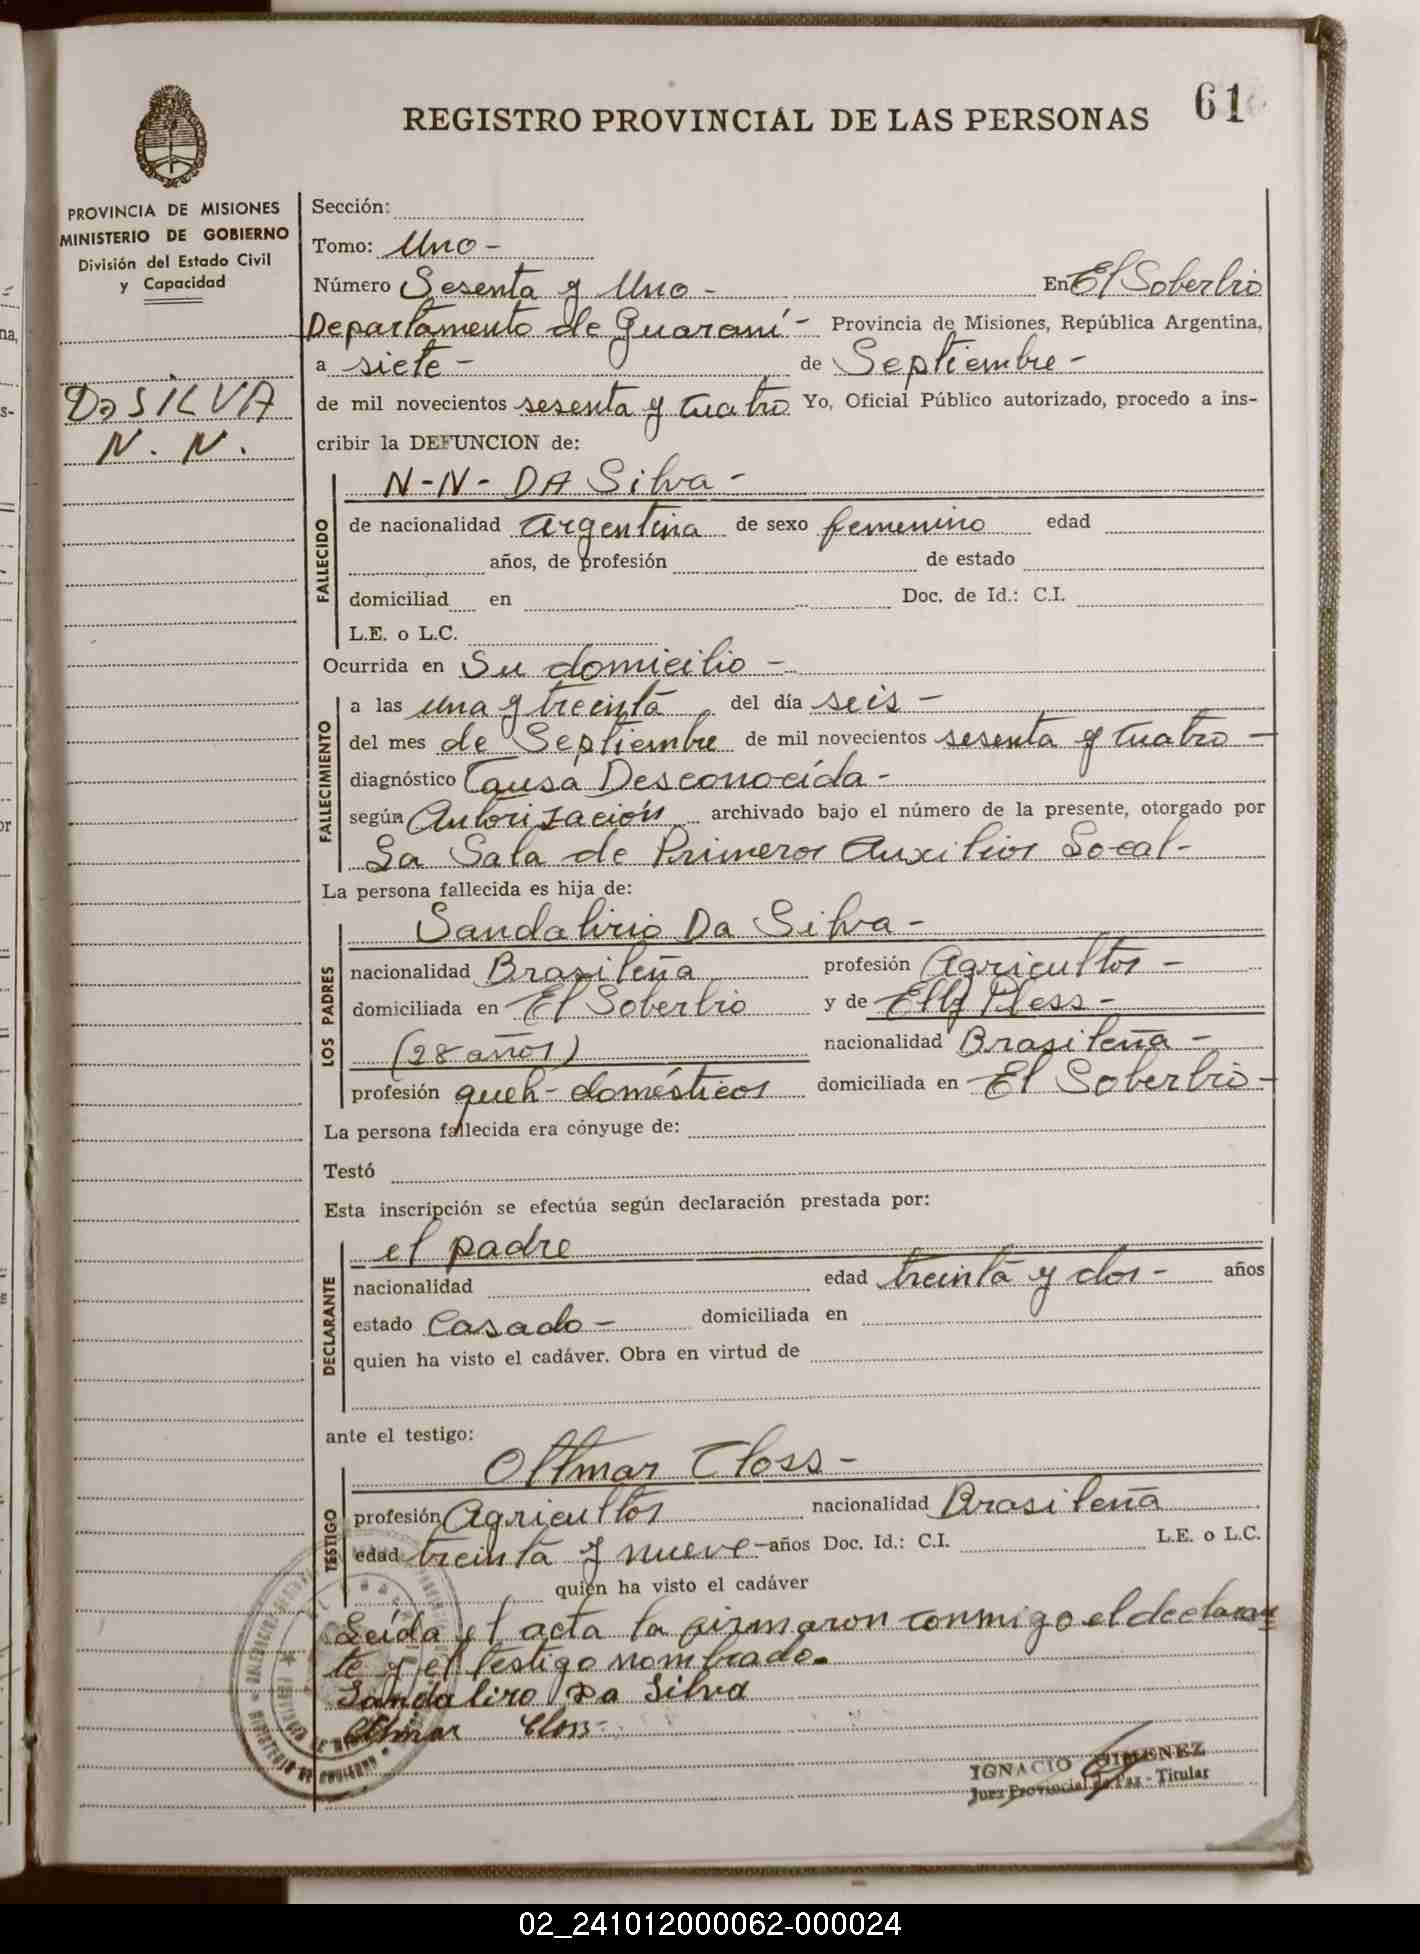 REGISTRO PROVINCIAL DE LAS PERSONAS 61
PROVINCIA DE MISIONES
MINISTERIO DE GOBIERNO
División del Estado Civil
y Capacidad
Da SILVA
N. N.
Sección:
Tomo: Uno -
Número Sesenta y Uno - En El Soberbio
Departamento de Guaraní - Provincia de Misiones, República Argentina,
a siete - de Septiembre -
de mil novecientos sesenta y cuatro Yo, Oficial Público autorizado, procedo a ins-
cribir la DEFUNCION de:
N-N- DA Silva -
FALLECIDO
de nacionalidad argentina de sexo femenino edad
años, de profesión de estado
domiciliad en Doc. de Id.: C.I.
L.E. o L.C.
Ocurrida en Su domicilio -
FALLECIMIENTO
a las una y treinta del día seis -
del mes de Septiembre de mil novecientos sesenta y cuatro -
diagnóstico Causa Desconocida -
según Autorización archivado bajo el número de la presente, otorgado por
La Sala de Primeros Auxilios Local -
La persona fallecida es hija de:
LOS PADRES
Sandalirio Da Silva -
nacionalidad Brasileña profesión Agricultor -
domiciliada en El Soberbio y de Elly -
(28 años) nacionalidad Brasileña -
profesión queh - domésticos domiciliada en El Soberbio -
La persona fallecida era cónyuge de:
Testó
Esta inscripción se efectúa según declaración prestada por:
DECLARANTE
el padre
nacionalidad edad treinta y dos - años
estado Casado - domiciliada en
quien ha visto el cadáver. Obra en virtud de
ante el testigo:
TESTIGO
Ottmar Closs -
profesión Agricultor nacionalidad Brasileña
edad treinta y nueve - años Doc. Id.: C.I. L.E. o L.C.
quien ha visto el cadáver
Leída el acta la firmaron conmigo el declaran
te y el testigo nombrado.
Sandaliro Da Silva
Ottmar Closs -
IGNACIO GIMENEZ
Juez Provincial de Paz - Titular
02_241012000062-000024